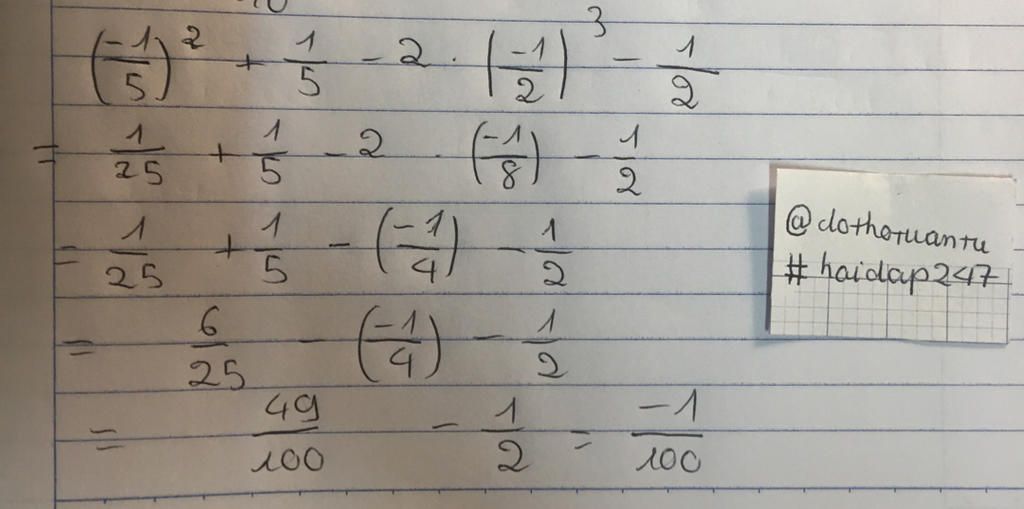 (-1/5)² + 1/5 - 2 · (-1/2)³ - 1/2
= 1/25 + 1/5 - 2 · (-1/8) - 1/2
= 1/25 + 1/5 - (-1/4) - 1/2
= 6/25 - (-1/4) - 1/2
= 49/100 - 1/2 = -1/100
@dothotuantu
# hoidap247